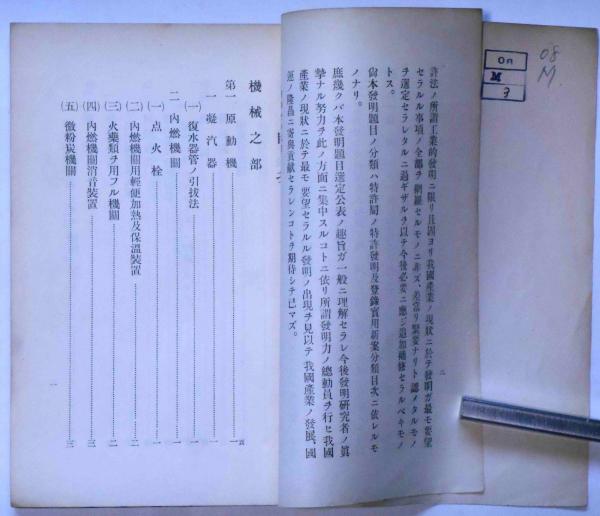 許法ノ所謂工業的發明ニ限リ且固ヨリ我國產業ノ現狀ニ於テ發明ガ最モ要望
セラルル事項ノ全部ヲ網羅セルモノニ非ズ、差當リ緊要ナリト認メタルモノ
ヲ選定セラレタルニ過ギザルヲ以テ今後必要ニ應ジ追加補修セラルベキモノ
トス。
尙本發明題目ノ分類ハ特許局ノ特許發明及登錄實用新案分類目次ニ依レルモ
ノナリ。
庶幾クバ本發明題目選定公表ノ趣旨ガ一般ニ理解セラレ今後發明硏究者ノ眞
摯ナル努力ヲ此ノ方面ニ集中スルコトニ依リ所謂發明力ノ總動員ヲ行ヒ我國
產業ノ現狀ニ於テ最モ要望セラルル發明ノ出現ヲ見以テ我國產業ノ發展、國
運ノ隆昌ニ寄與貢獻セラレンコトヲ期待シテ已マズ。
二
機械之部
頁
第一 原動機……一
一 凝汽器……一
(一) 復水器管ノ引拔法……一
二 內燃機關……一
(一) 点火栓……一
(二) 內燃機關用輕便加熱及保溫裝置……二
(三) 火藥類ヲ用フル機關……二
(四) 內燃機關消音裝置……三
(五) 微粉炭機關……三
一
on
M
3
08
M.